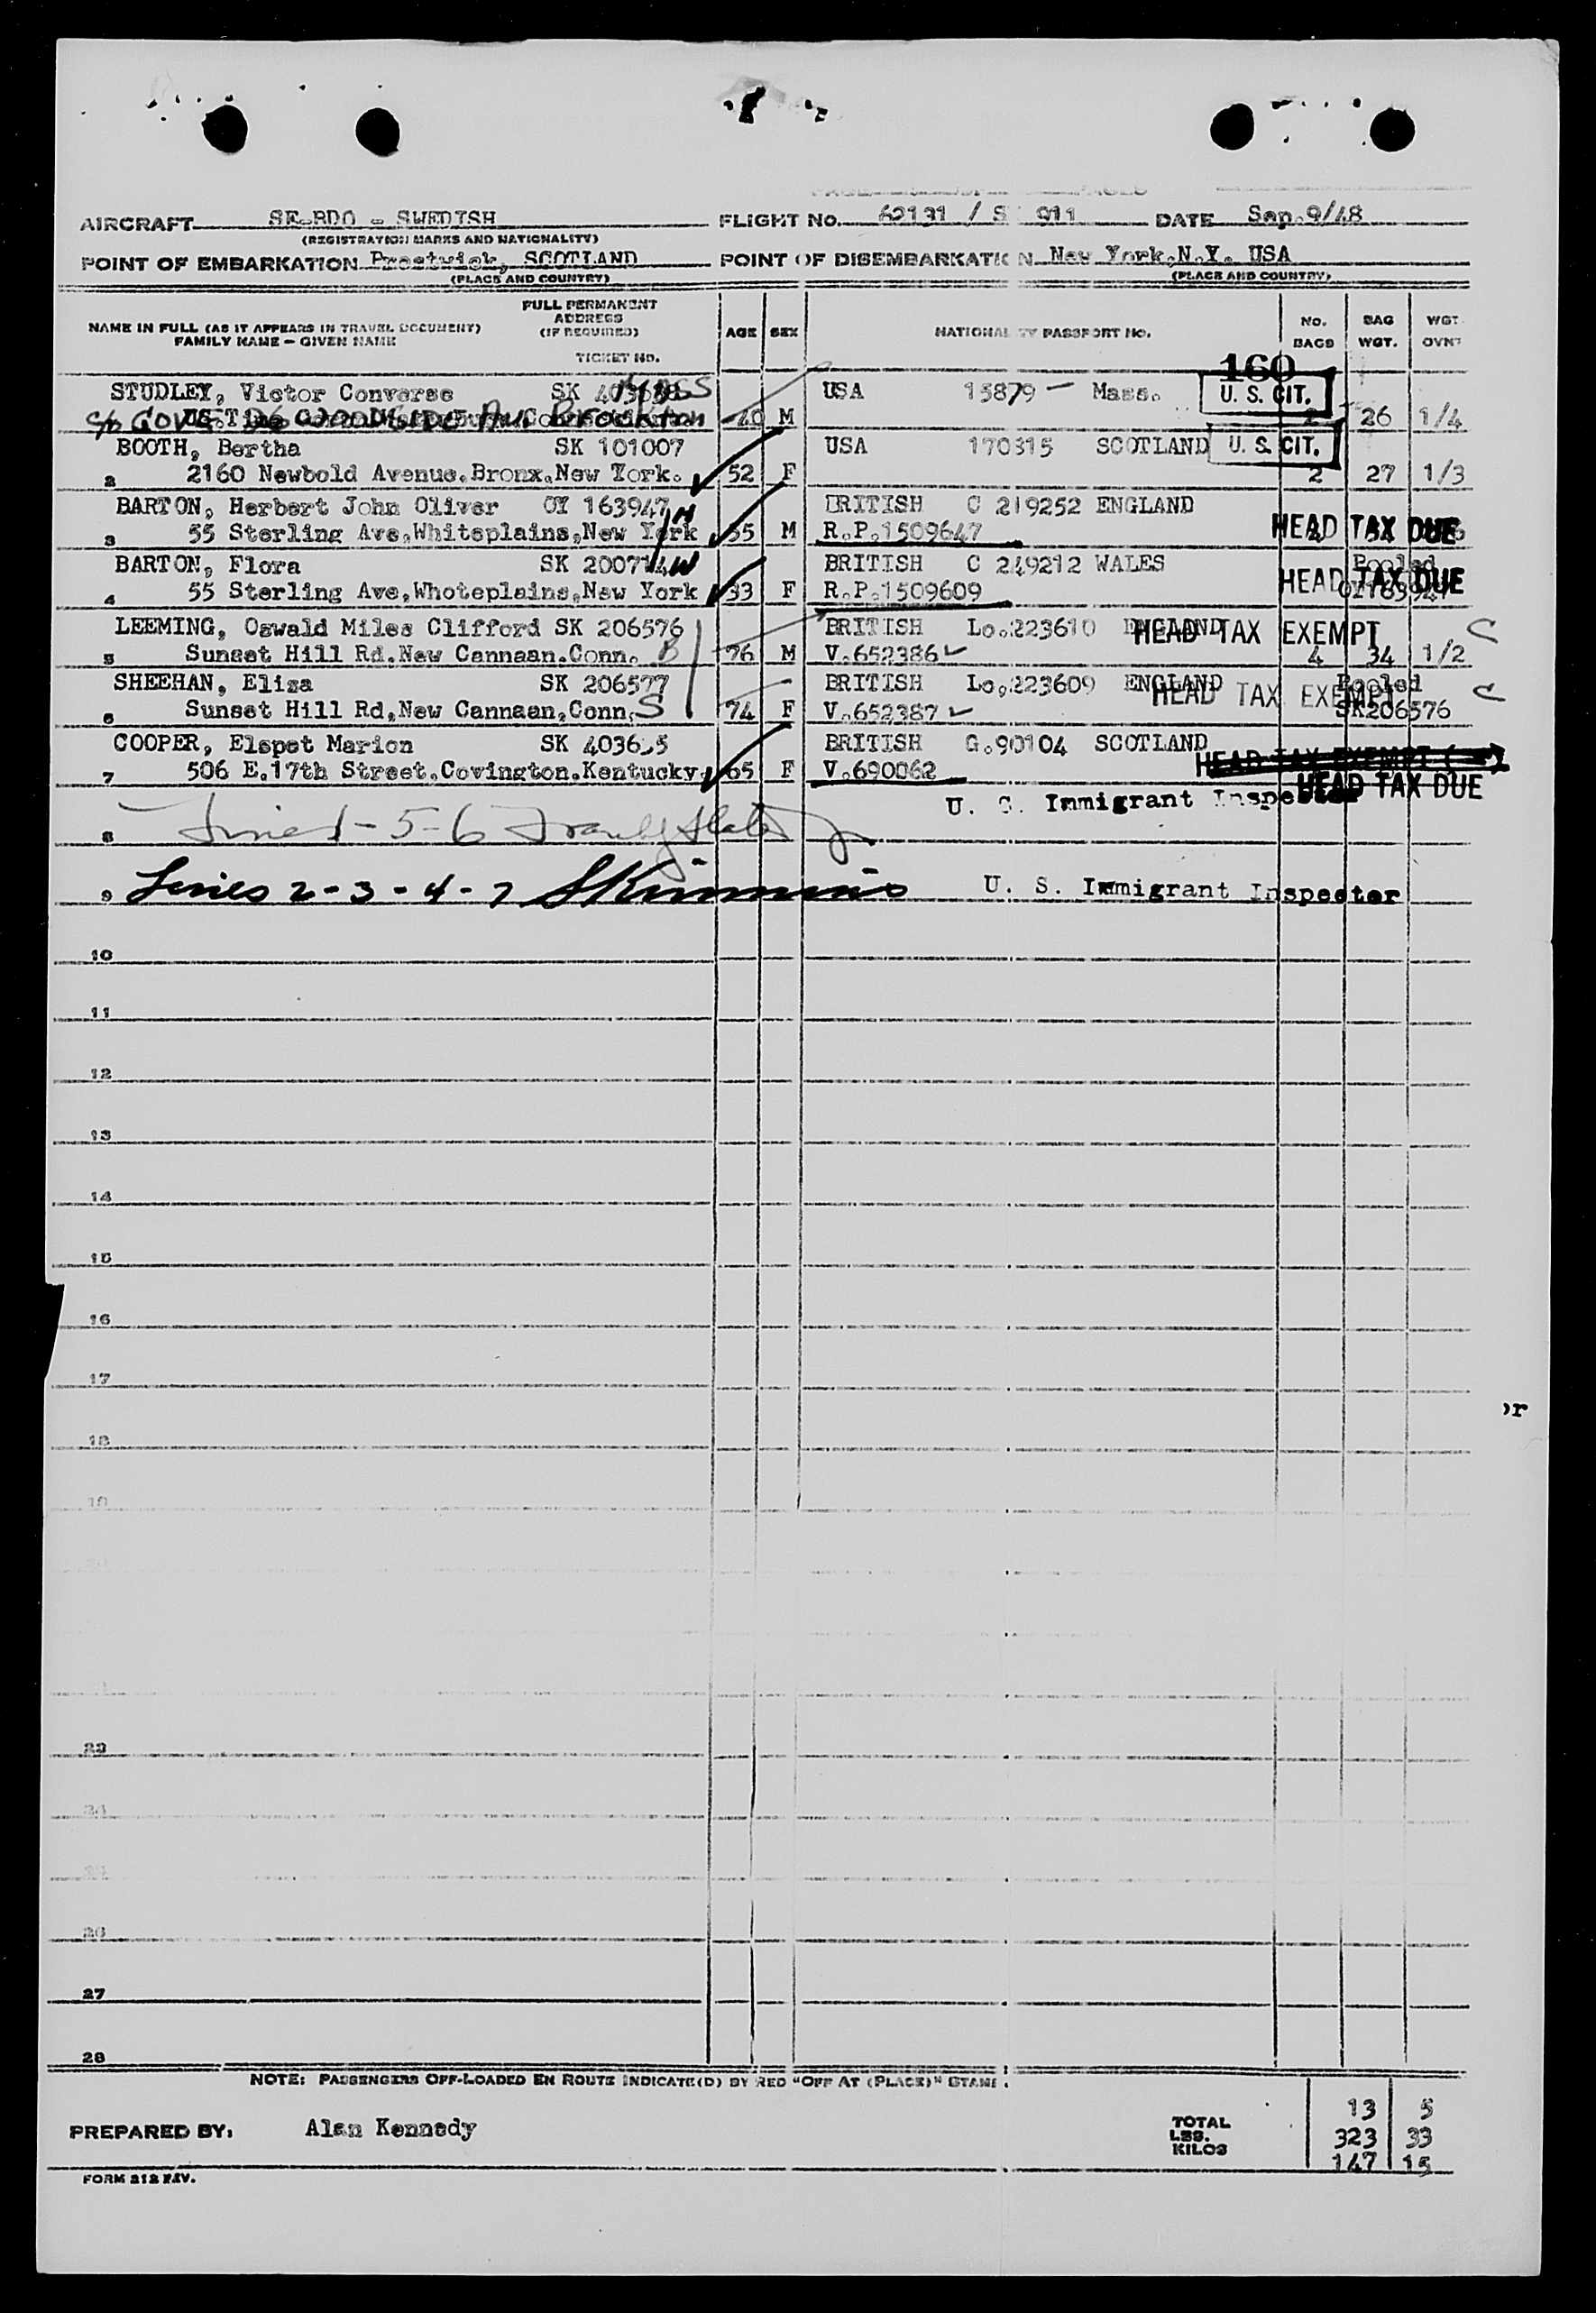 AIRCRAFT SE-BDO - SWEDISH FLIGHT No. 62131 / S 911 DATE Sep.9/48
(REGISTRATION MARKS AND NATIONALITY)
POINT OF EMBARKATION Prestwick, SCOTLAND POINT OF DISEMBARKATION New York.N.Y. USA
(PLACE AND COUNTRY) (PLACE AND COUNTRY)
NAME IN FULL (AS IT APPEARS IN TRAVEL DOCUMENT)
FAMILY NAME – GIVEN NAME
FULL PERMANENT
ADDRESS
(IF REQUIRED)
TICKET NO.
AGE SEX NATIONALITY PASSPORT NO. No. BAGS BAG WGT. WGT OVN
160
STUDLEY, Victor Converse SK USA 15879 – Mass. U. S. CIT.
Woodside Ave Brockton Mass 40 M 2 26 1/4
BOOTH, Bertha SK 101007 USA 170315 SCOTLAND U. S. CIT.
2 2160 Newbold Avenue.Bronx.New York. 52 F 2 27 1/3
BARTON, Herbert John Oliver OY 163947 BRITISH C 219252 ENGLAND
3 55 Sterling Ave,Whiteplains,New York 35 M R.P.1509647 HEAD TAX DUE
BARTON, Flora SK BRITISH C 249212 WALES Pooled
4 55 Sterling Ave,Whoteplains,New York 33 F R.P.1509609 HEAD TAX DUE
LEEMING, Oswald Miles Clifford SK 206576 BRITISH Lo.223610 ENGLAND HEAD TAX EXEMPT
5 Sunset Hill Rd.New Cannaan.Conn. 76 M V.652386 4 34 1/2
SHEEHAN, Eliza SK 206577 BRITISH Lo.223609 ENGLAND Pooled
HEAD TAX EXEMPT
6 Sunset Hill Rd,New Cannaan,Conn. 74 F V.652387 SK206576
COOPER, Elspet Marion SK BRITISH G.90104 SCOTLAND
HEAD TAX EXEMPT
7 506 E.17th Street.Covington.Kentucky. 65 F V.690062 HEAD TAX DUE
U. S. Immigrant Inspector
8 Lines 1-5-6
9 Lines 2-3-4-7 U. S. Immigrant Inspector
10
11
12
13
14
15
16
17
or
18
19
23
24
26
27
28
NOTE: PASSENGERS OFF-LOADED EN ROUTE INDICATE(D) BY RED "OFF AT (PLACE)" STAMP.
PREPARED BY: Alan Kennedy
TOTAL 13 5
LBS. 323 33
KILOS 147 15
FORM 212 REV.